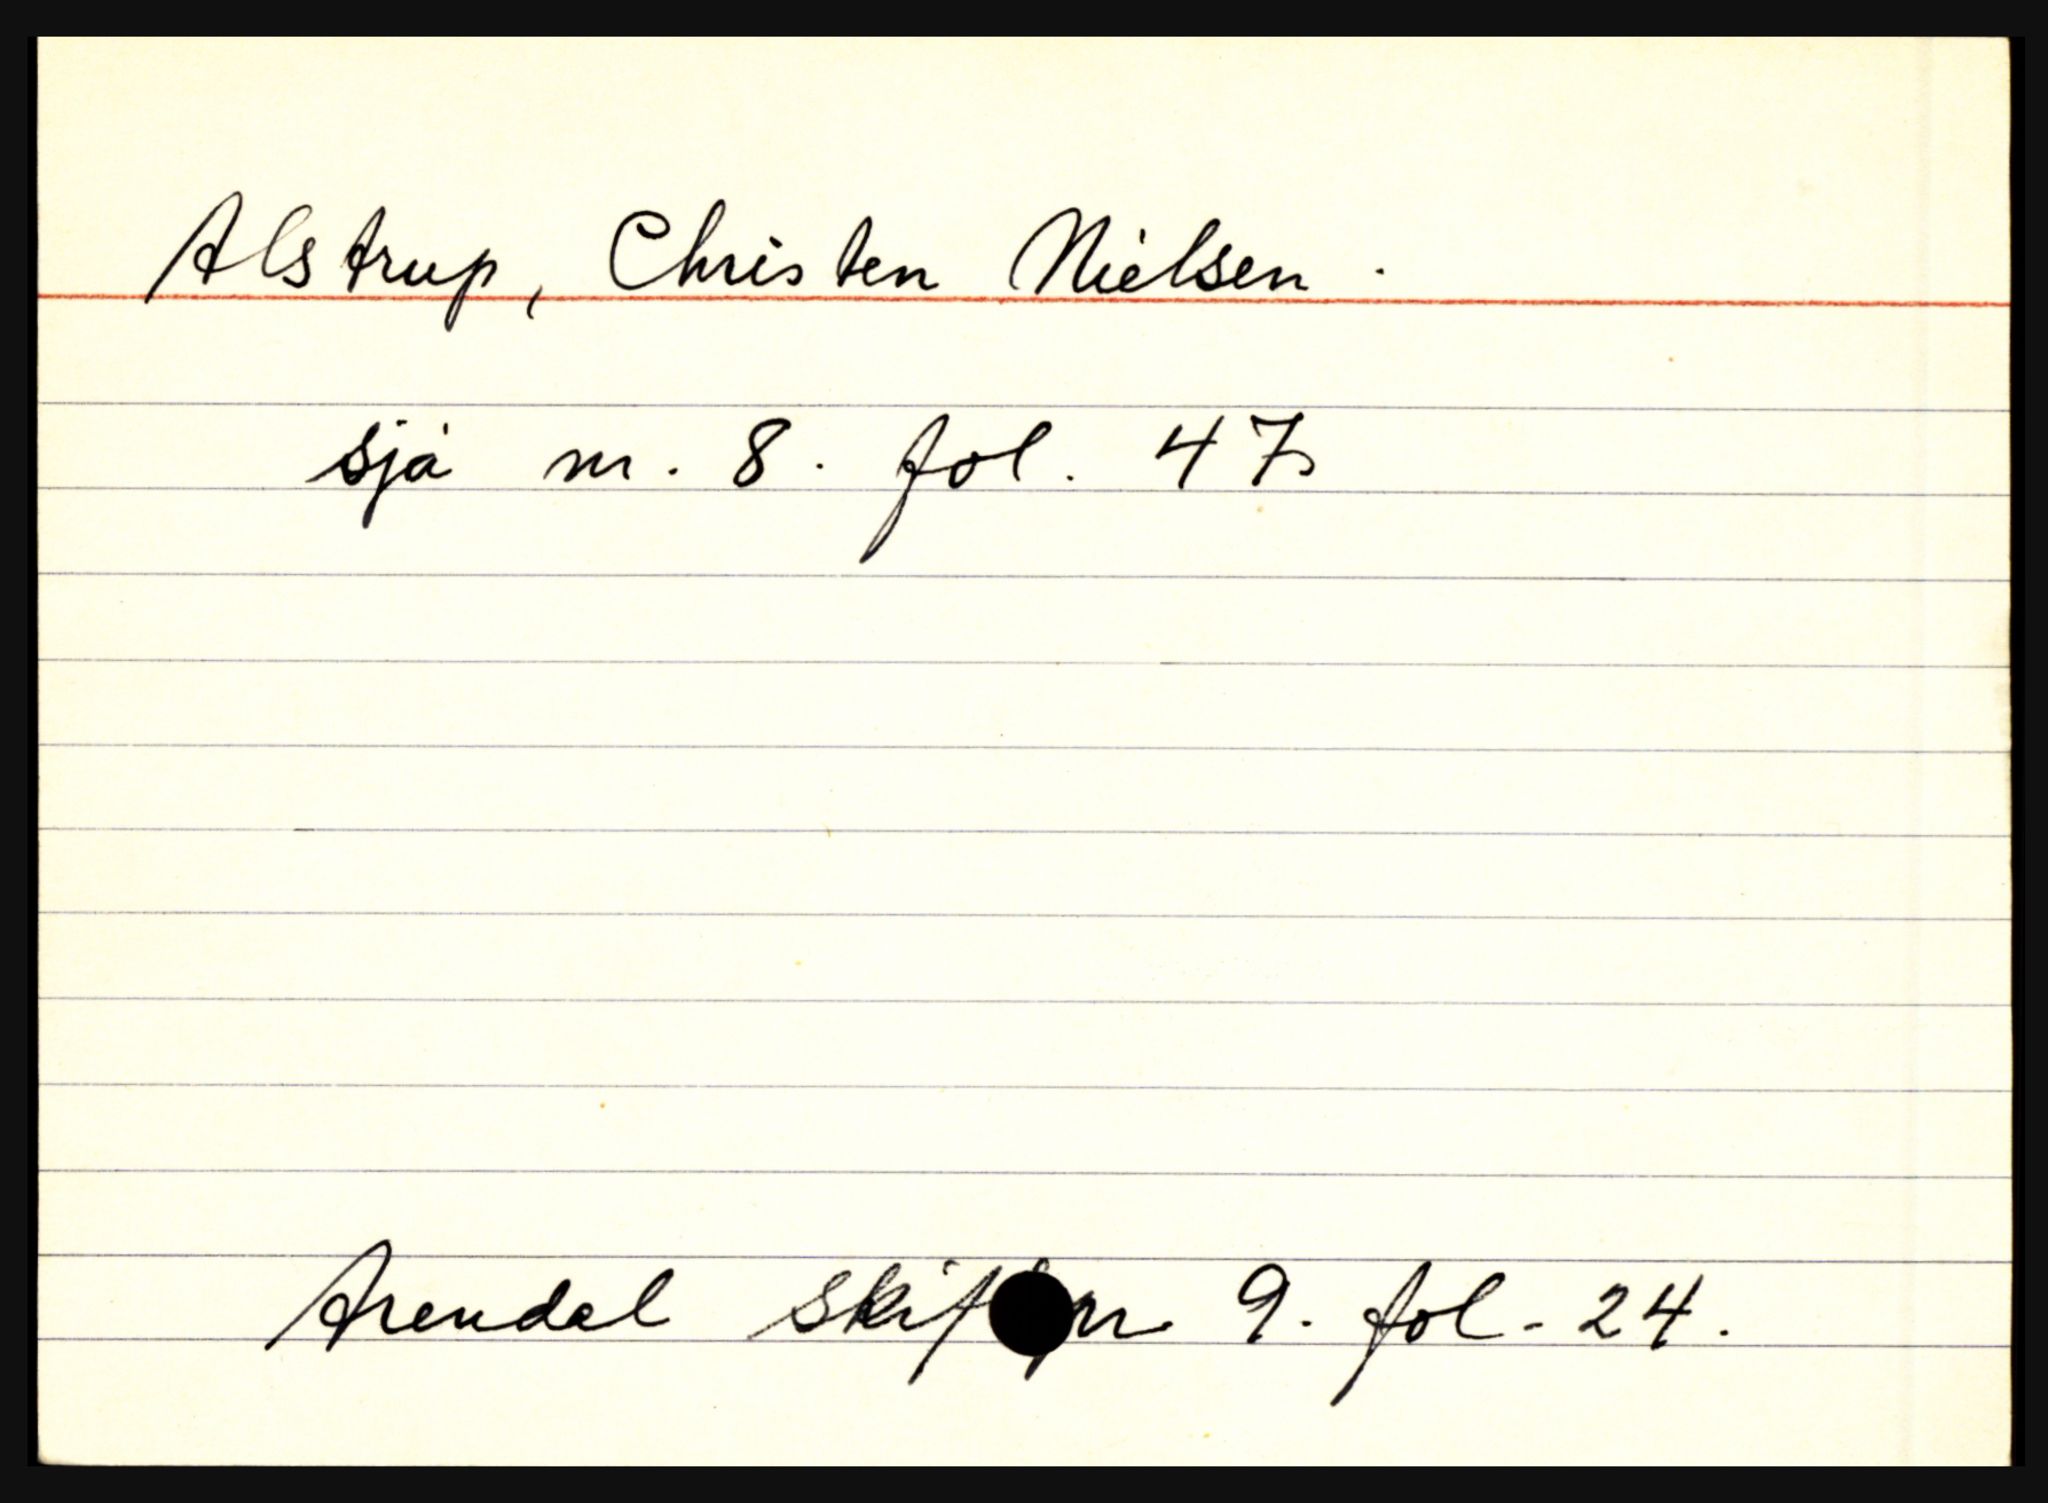 Alstrup, Christen Nielsen.
sjå nr. 8. fol. 47
Arendal nr 9. fol. 24.